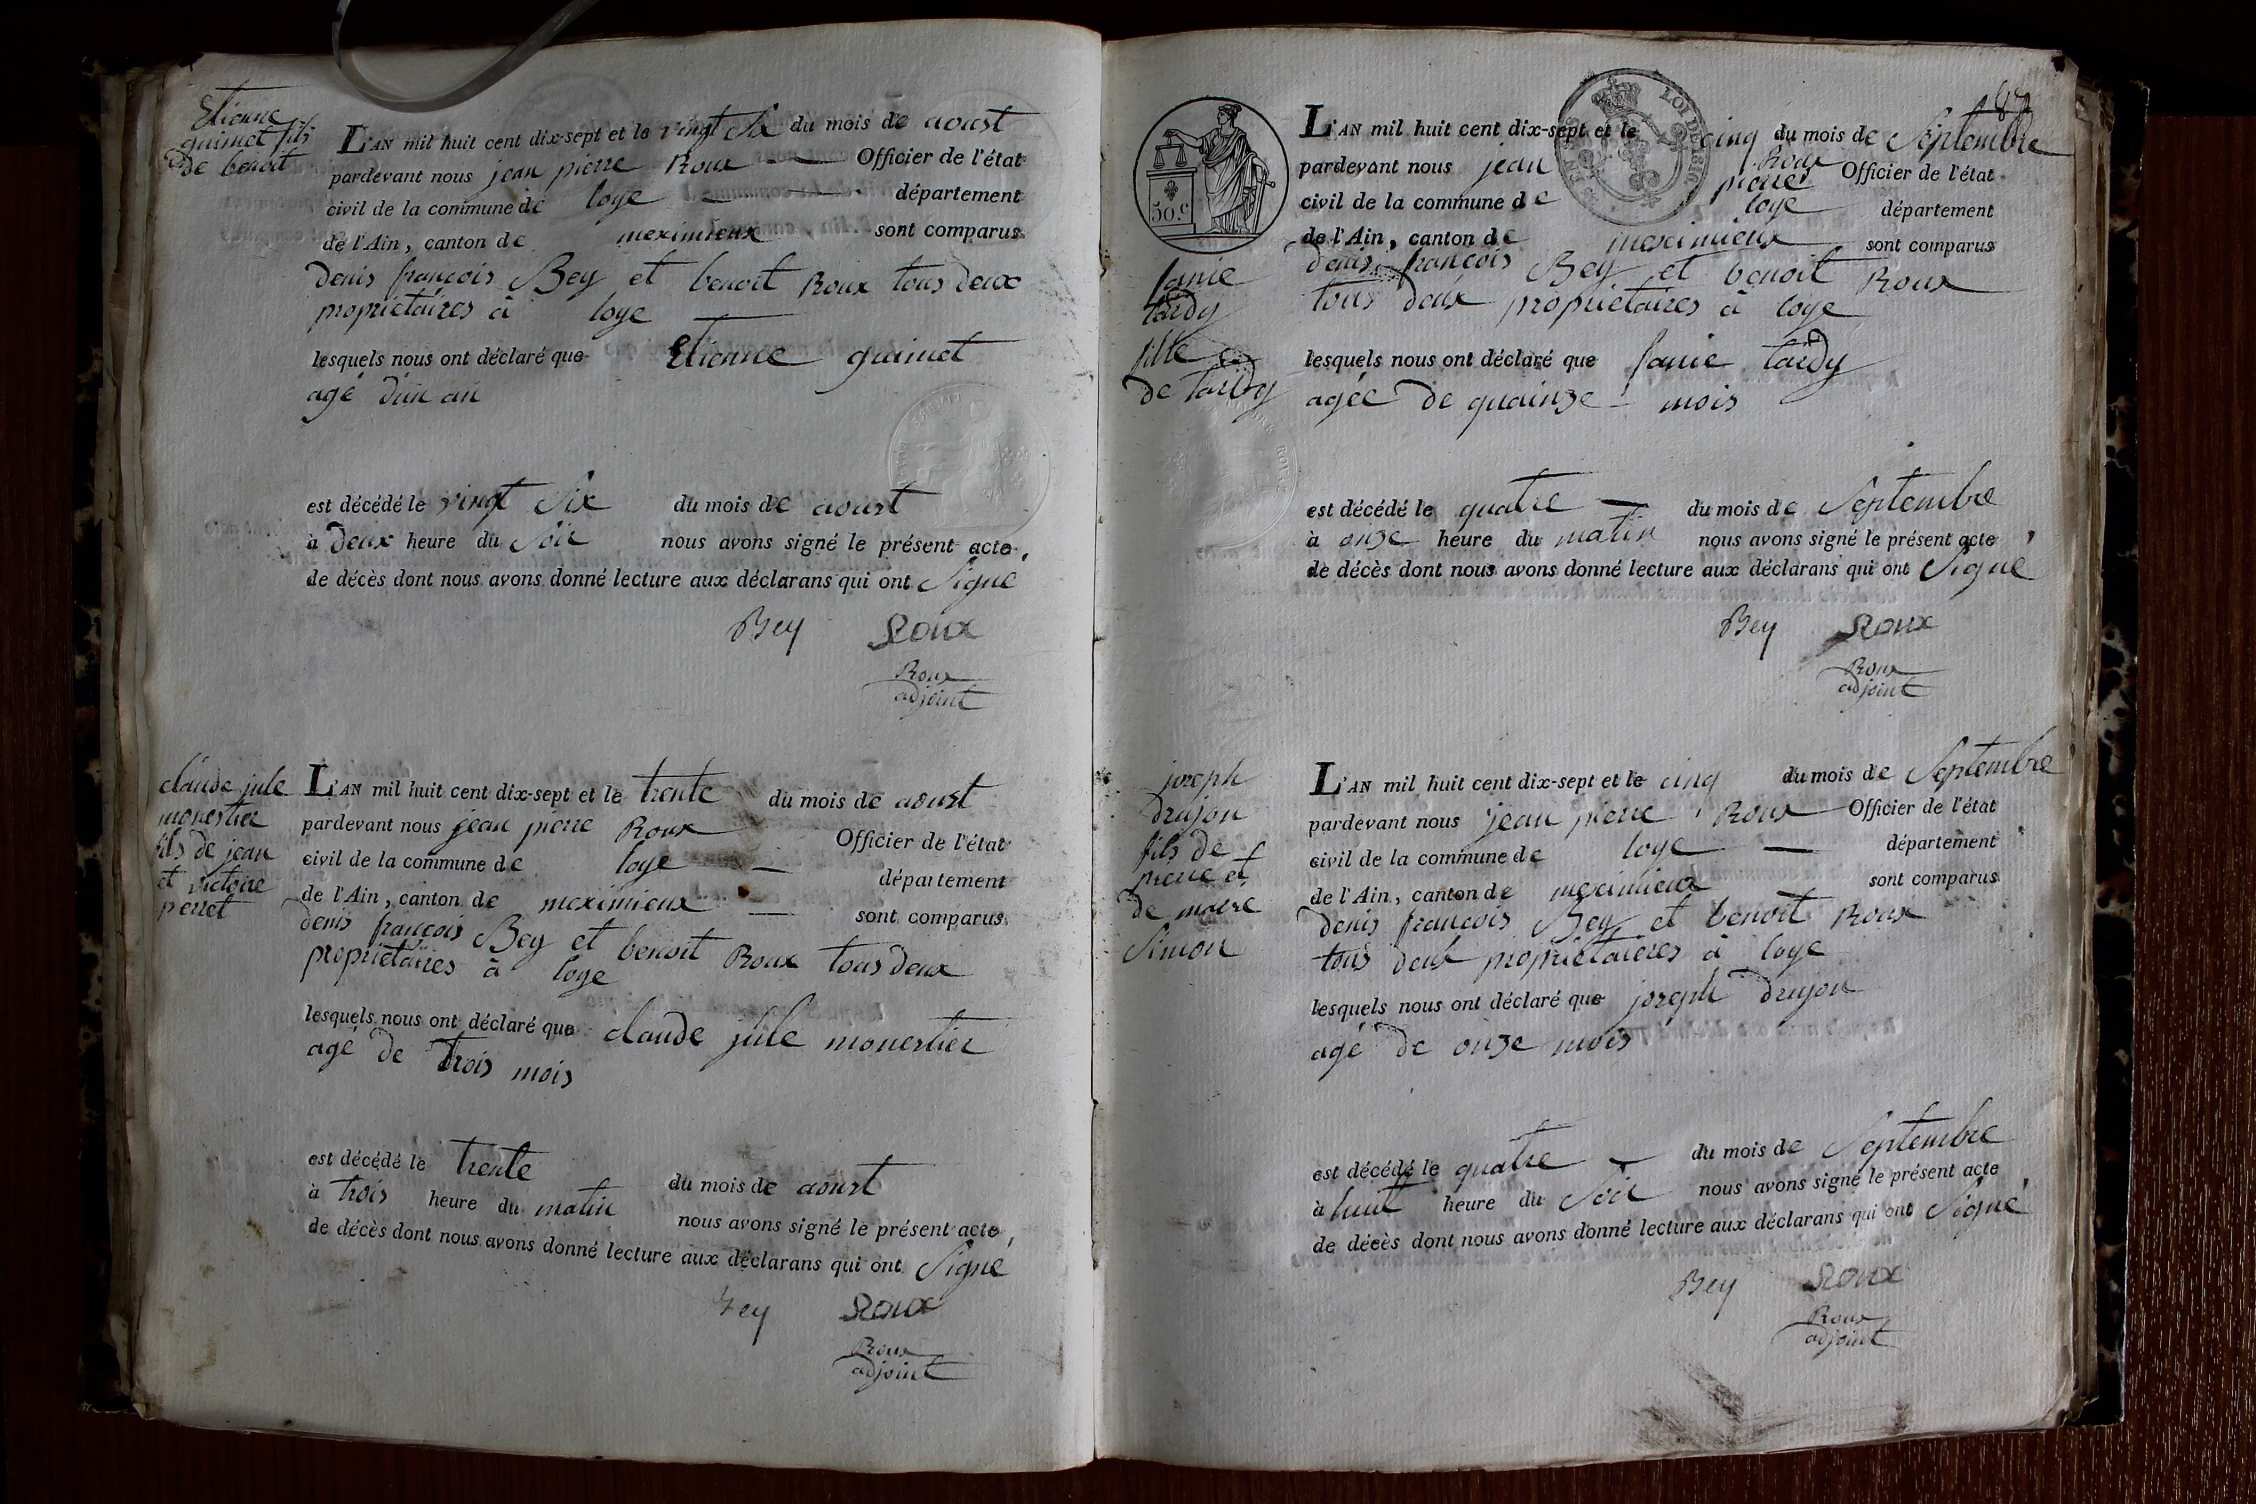 Etienne
guimet fils
de benoit
L'AN mil huit cent dix-sept et le vingt six du mois de aoust
pardevant nous jean pierre Roux Officier de l'état
civil de la commune de loye département
de l'Ain, canton de meximieux sont comparus
denis françois Bey et benoit Roux tous deux
propriétaires à loye
lesquels nous ont déclaré que Etienne guimet
agé d'un an
est décédé le vingt six du mois de aoust
à deux heure du soir nous avons signé le présent acte
de décès dont nous avons donné lecture aux déclarans qui ont signé
Bey Roux
Roux
adjoint
claude jule
monestier
fils de jean
et victoire
perret
L'AN mil huit cent dix-sept et le trente du mois de aoust
pardevant nous jean pierre Roux Officier de l'état
civil de la commune de loye département
de l'Ain, canton de meximieux sont comparus
denis françois Bey et benoit Roux tous deux
propriétaires à loye
lesquels nous ont déclaré que claude jule monestier
agé de trois mois
est décédé le trente du mois de aoust
à trois heure du matin nous avons signé le présent acte
de décès dont nous avons donné lecture aux déclarans qui ont signé
Bey Roux
Roux
adjoint
50 c
LOI DE 1816
L'AN mil huit cent dix-sept et le cinq du mois de Septembre
pardevant nous jean pierre Roux Officier de l'état
civil de la commune de loye département
de l'Ain, canton de meximieux sont comparus
denis françois Bey et benoit Roux
tous deux propriétaires à loye
fanie
tardy
fille
de tardy
lesquels nous ont déclaré que fanie tardy
agée de quainze mois
est décédé le quatre du mois de Septembre
à onze heure du matin nous avons signé le présent acte
de décès dont nous avons donné lecture aux déclarans qui ont signé
Bey Roux
Roux
adjoint
joseph
drujon
fils de
pierre et
de marie
Simon
L'AN mil huit cent dix-sept et le cinq du mois de Septembre
pardevant nous jean pierre Roux Officier de l'état
civil de la commune de loye département
de l'Ain, canton de meximieux sont comparus
denis françois Bey et benoit Roux
tous deux propriétaires à loye
lesquels nous ont déclaré que joseph drujon
agé de onze mois
est décédé le quatre du mois de Septembre
à huit heure du soir nous avons signé le présent acte
de décès dont nous avons donné lecture aux déclarans qui ont signé
Bey Roux
Roux
adjoint